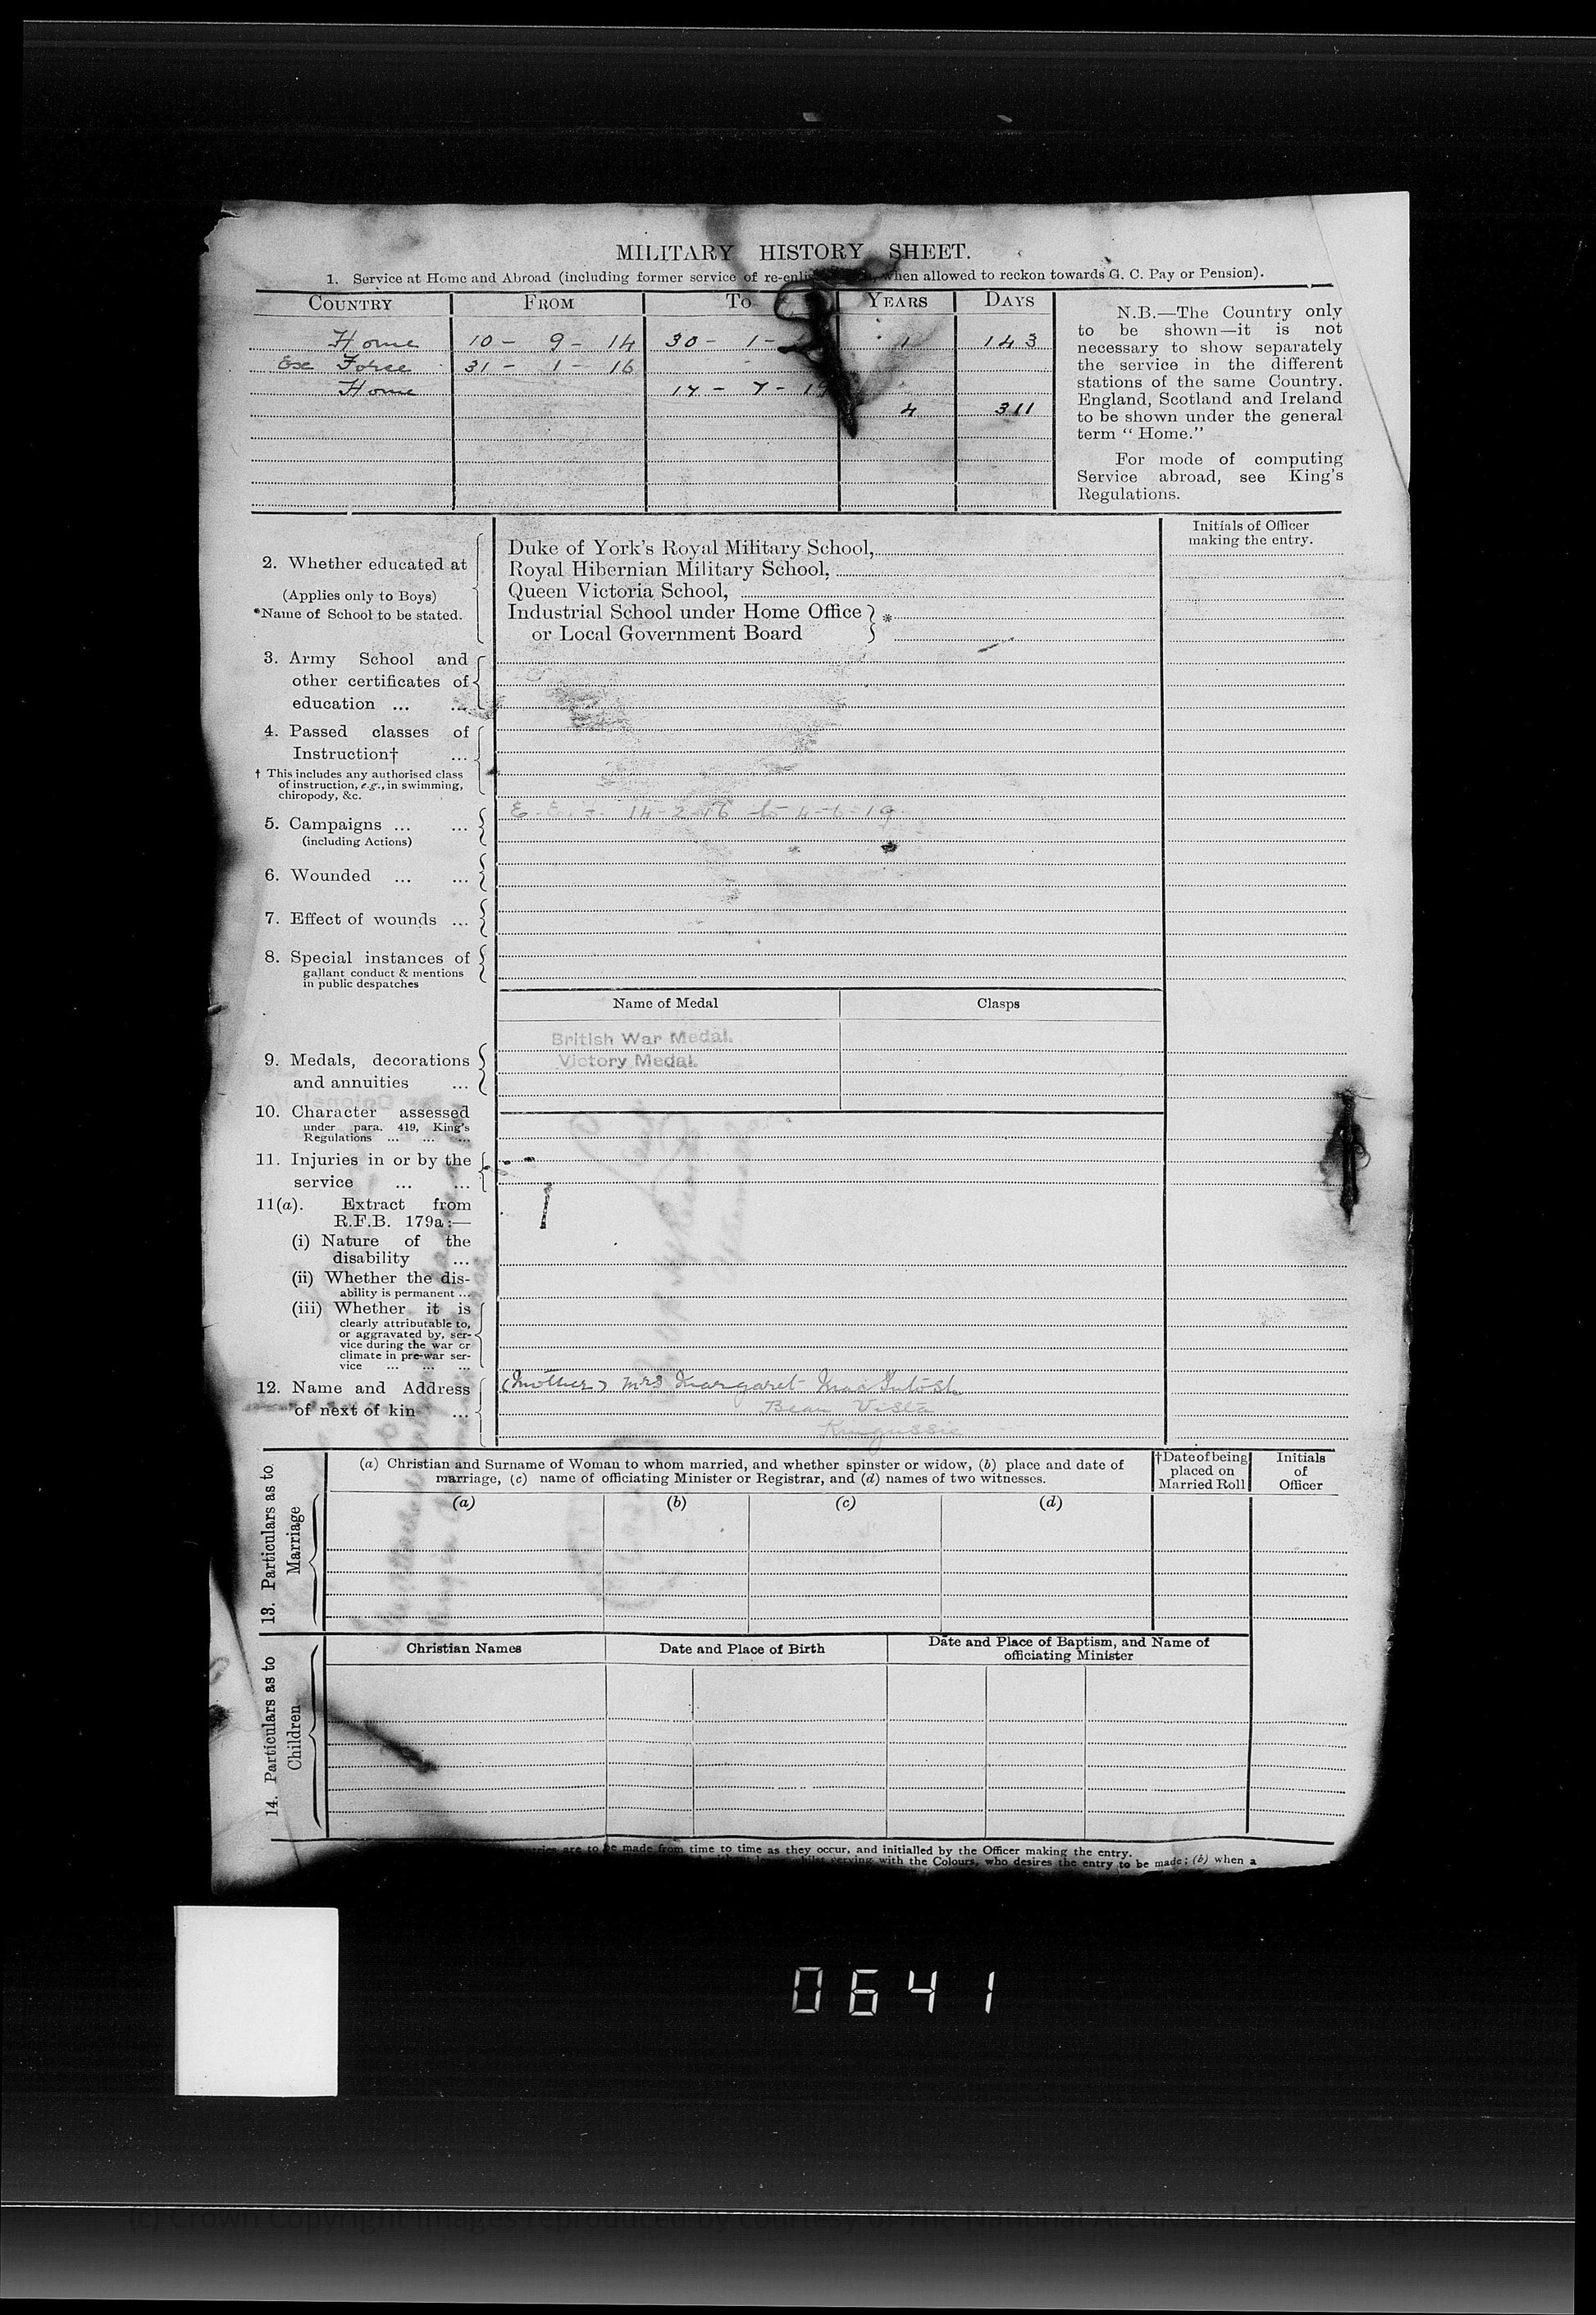 MILITARY HISTORY SHEET.
1. Service at Home and Abroad (including former service of when allowed to reckon towards G. C. Pay or Pension).
COUNTRY FROM TO YEARS DAYS
Home 10 - 9 - 14 30 - 1 - 1 143
Ex Force 31 - 1 - 16
Home 17 - 7 - 19
4 311
N.B.—The Country only
to be shown—it is not
necessary to show separately
the service in the different
stations of the same Country.
England, Scotland and Ireland
to be shown under the general
term “ Home.”
For mode of computing
Service abroad, see King's
Regulations.
Initials of Officer
making the entry.
2. Whether educated at
(Applies only to Boys)
*Name of School to be stated.
Duke of York's Royal Military School,
Royal Hibernian Military School,
Queen Victoria School,
Industrial School under Home Office } *
or Local Government Board }
3. Army School and
other certificates of
education ... ...
4. Passed classes of
Instruction† ...
† This includes any authorised class
of instruction, e.g., in swimming,
chiropody, &c.
5. Campaigns ... ...
(including Actions)
E. E. F. 14-2-16 to 4-6-19
6. Wounded ... ...
7. Effect of wounds ...
8. Special instances of
gallant conduct & mentions
in public despatches
Name of Medal Clasps
British War Medal.
Victory Medal.
9. Medals, decorations
and annuities ...
10. Character assessed
under para. 419, King's
Regulations ... ... ...
11. Injuries in or by the
service ... ...
11(a). Extract from
R.F.B. 179a:—
(i) Nature of the
disability ...
(ii) Whether the dis-
ability is permanent ...
(iii) Whether it is
clearly attributable to,
or aggravated by, ser-
vice during the war or
climate in pre-war ser-
vice ... ... ...
12. Name and Address
of next of kin ...
(Mother) Mrs Margaret MacIntosh
Beau Vista
Kingussie
13. Particulars as to
Marriage
(a) Christian and Surname of Woman to whom married, and whether spinster or widow, (b) place and date of
marriage, (c) name of officiating Minister or Registrar, and (d) names of two witnesses.
†Date of being
placed on
Married Roll
Initials
of
Officer
(a) (b) (c) (d)
14. Particulars as to
Children
Christian Names
Date and Place of Birth
Date and Place of Baptism, and Name of
officiating Minister
are to be made from time to time as they occur, and initialled by the Officer making the entry.
serving with the Colours, who desires the entry to be made; (b) when a
0641
(c) Crown Copyright Images reproduced by courtesy of The National Archives, London, England